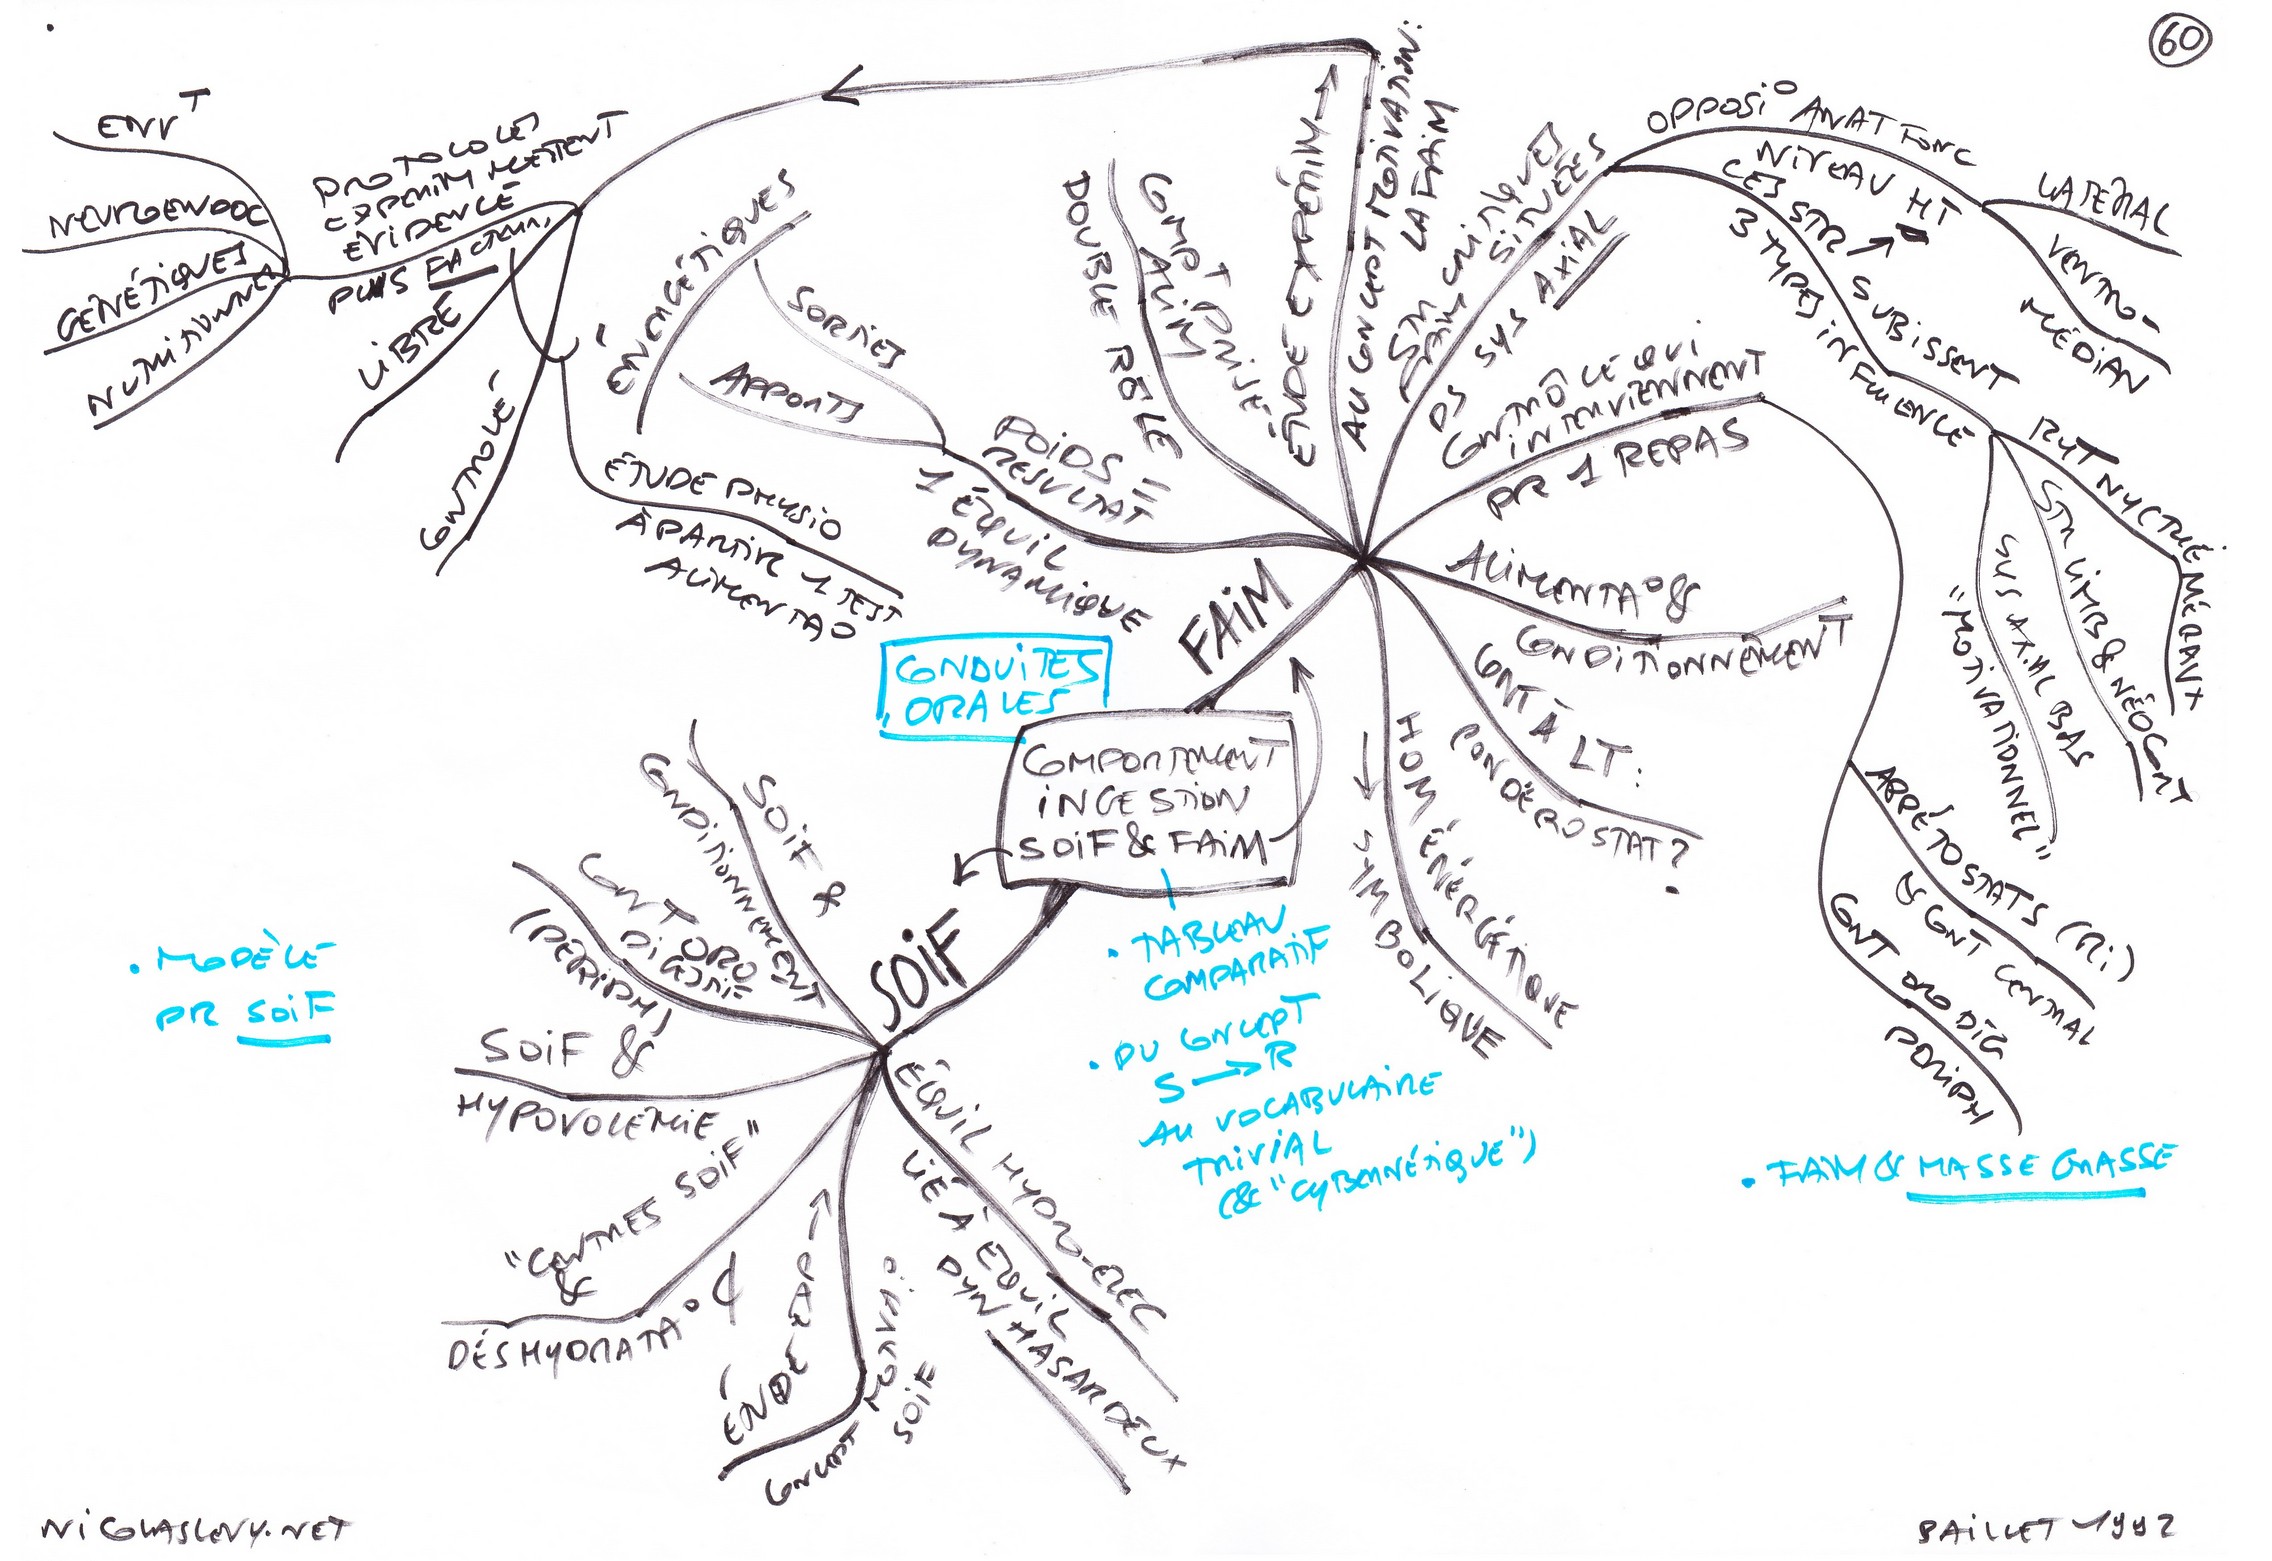 60
ENVT
NEUROENDOC
GÉNÉTIQUES
NUTRITIONNEL
PROTOCOLES
EXPERIM METTENT
EVIDENCE
PLUS FACTEURS
LIBRE
CONTROLÉ
ÉTUDE PHYSIO
À PARTIR 1 TEST
ALIMENTAO
ÉNERGÉTIQUES
SORTIES
APPORTS
POIDS =
RESULTAT
1 ÉQUIL
DYNAMIQUE
COMPT PRISE
ALIM
DOUBLE RÔLE
ÉTUDE EXPÉRIM →
AU CONCEPT MOTIVATION:
LA FAIM
STR CRITIQUES
FAIM SITUÉES
DS SYS AXIAL
OPPOSI° ANAT FONC
NIVEAU HT
LATÉRAL
VENTRO-
MÉDIAN
CES STR SUBISSENT
3 TYPES INFLUENCE
RYT NYCTHÉMÉRAUX
STR LIMB & NÉOCORT
SUS AXIAL BAS
"MOTIVATIONNEL"
CONTRÔLE QUI
INTERVIENNENT
PR 1 REPAS
APPÉTOSTATS (RI)
& CONT CENTRAL
CONT ORO DIG
PÉRIPH
ALIMENTA° &
CONDITIONNEMENT
CONT À LT:
PONDÉROSTAT?
HOM ÉNERGÉTIQUE
→ SYMBOLIQUE
FAIM
CONDUITES
ORALES
COMPORTEMENT
INGESTION
SOIF & FAIM
SOIF
SOIF &
CONDITIONNEMENT
CONT ORO
DIGESTIF
(PÉRIPH)
SOIF &
HYPOVOLÉMIE
"CENTRES SOIF"
&
DÉSHYDRATA° ¢
ÉTUDE EXP →
CONCEPT MOTIVA°
SOIF
ÉQUIL HYDRO-ELEC
LIÉ À EQUIL
DYN HASARDEUX
• TABLEAU
COMPARATIF
• DU CONCEPT
S → R
AU VOCABULAIRE
TRIVIAL
(& "CYBERNÉTIQUE")
• MODÈLE
PR SOIF
• FAIM & MASSE GRASSE
NICOLASLEVY.NET
BAILLET 1992